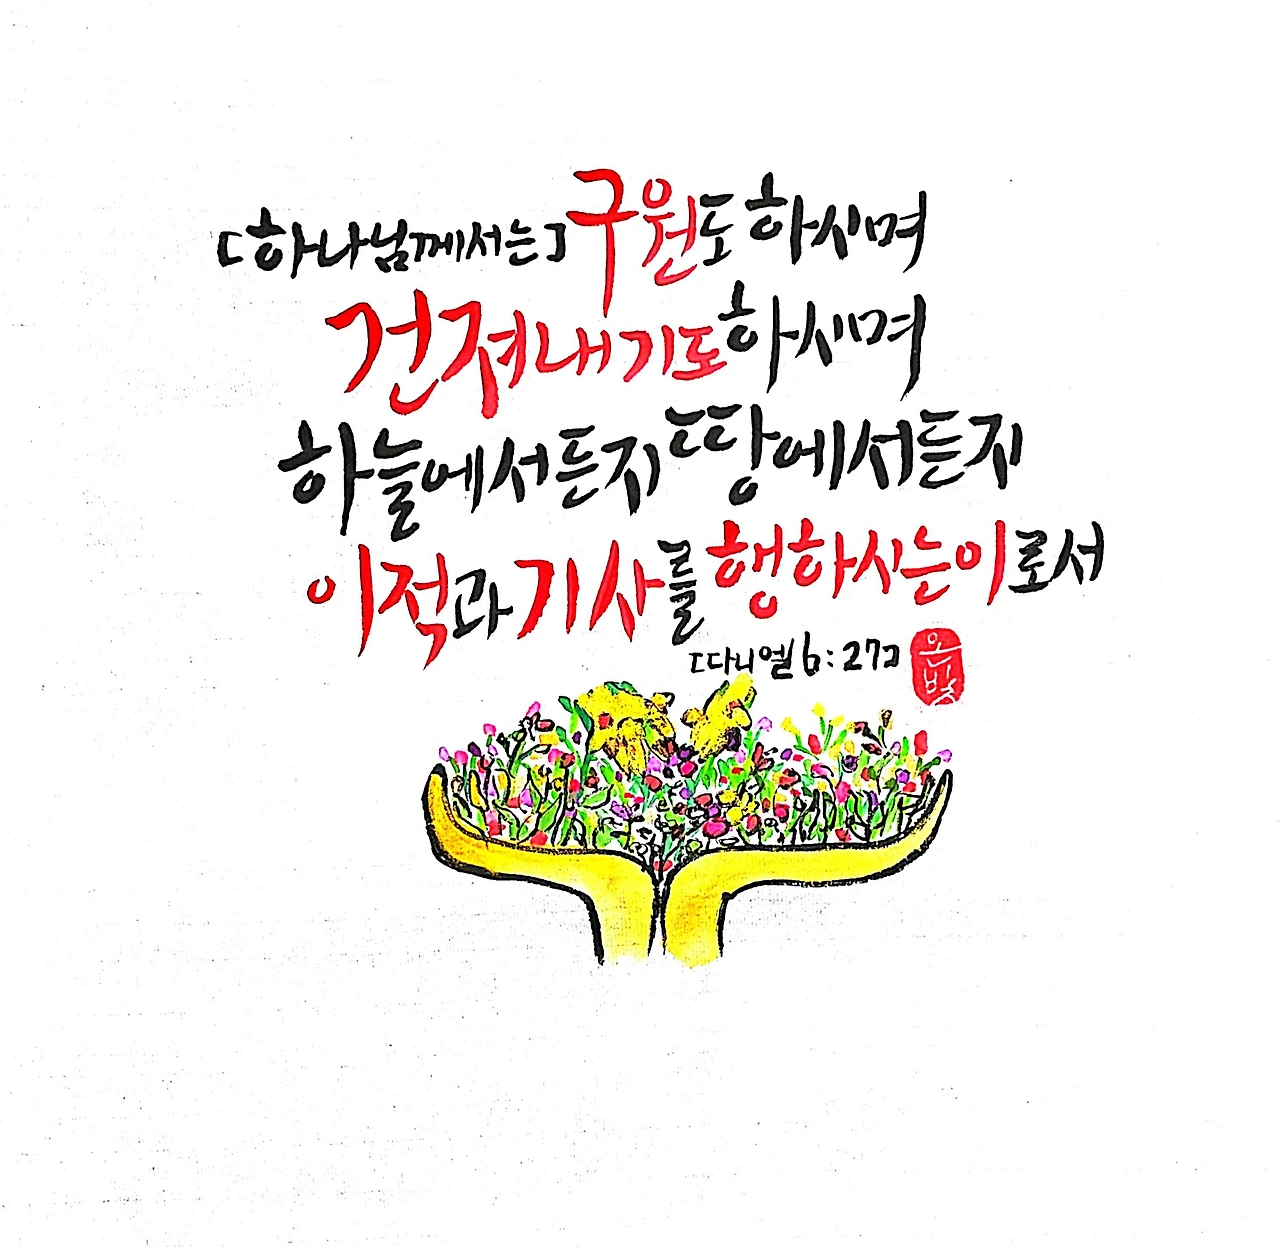 [하나님께서는] 구원도 하시며
건져내기도 하시며
하늘에서든지 땅에서든지
이적과 기사를 행하시는 이로서
[다니엘 6:27]